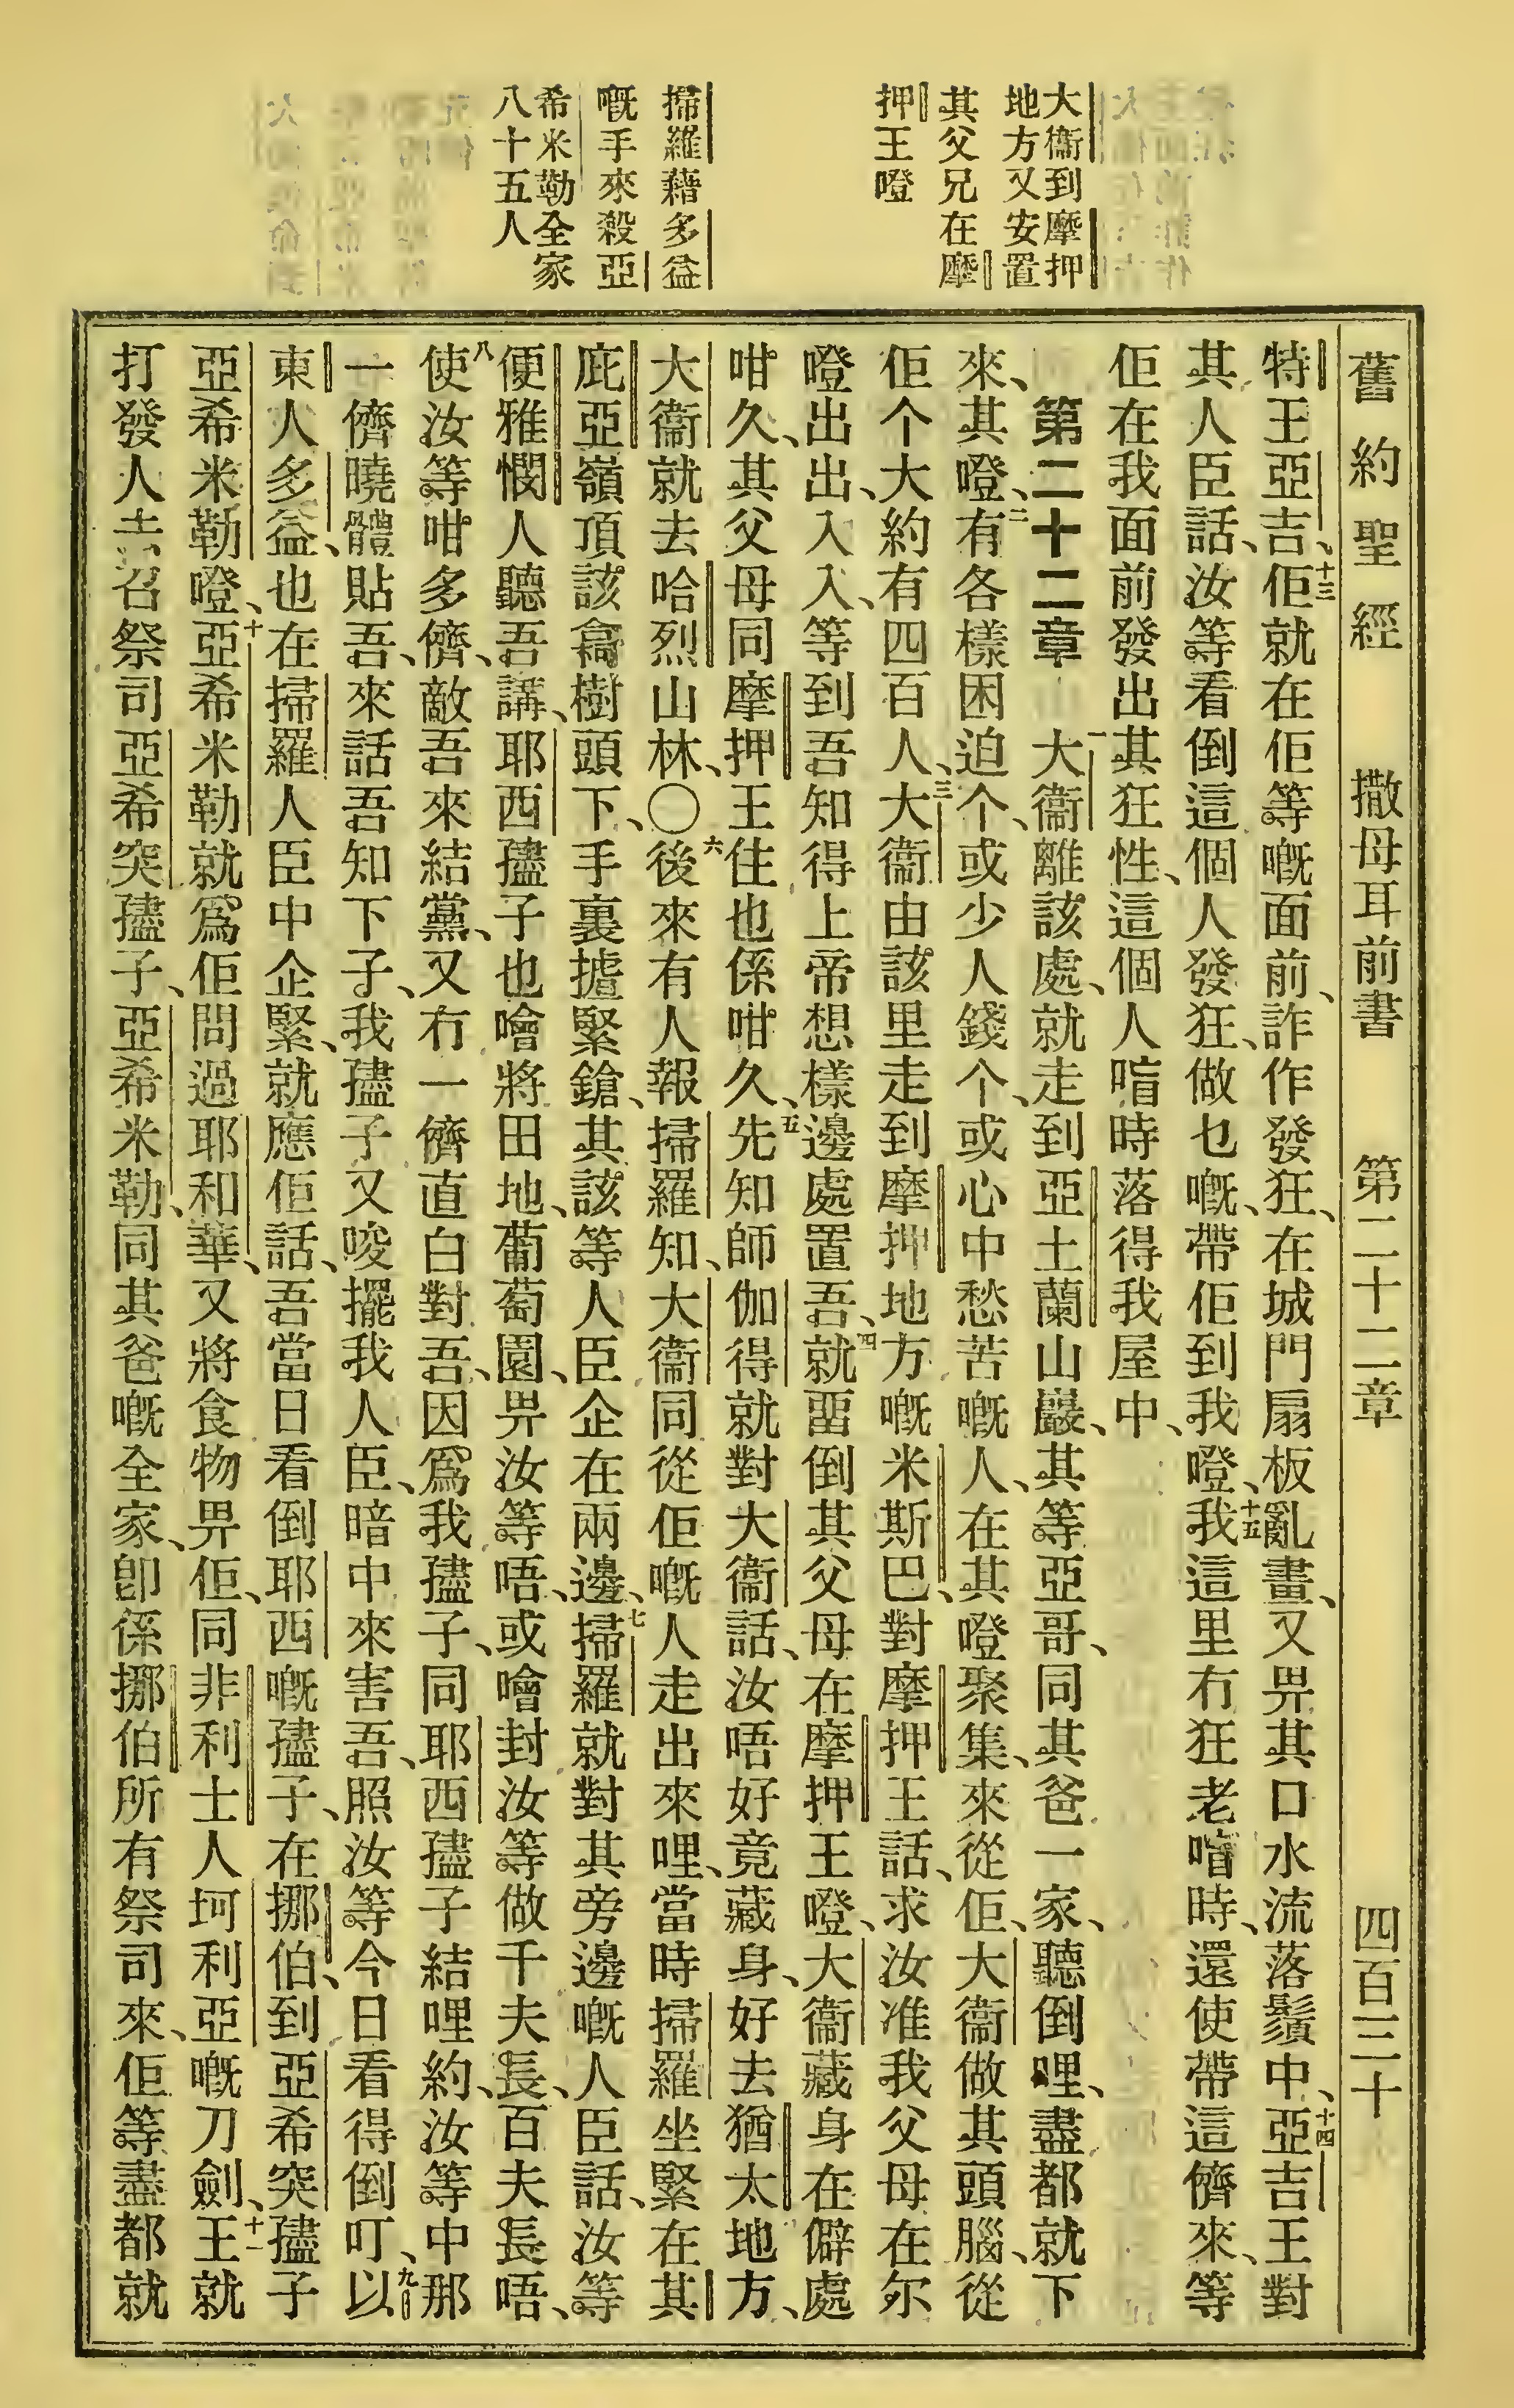 大衞到摩押
地方又安置
其父兄在摩
押王嶝
掃羅藉多益
嘅手來殺亞
希米勒全家
八十五人
舊約聖經 撒母耳前書 第二十二章 四百三十
特王亞吉、十三佢就在佢等嘅面前、詐作發狂、在城門扇板亂畫、又畀其口水流落鬚中、十四亞吉王對
其人臣話、汝等看倒這個人發狂、做乜嘅、帶佢到我嶝、十五我這里冇狂老㗒時、還使帶這儕來、等
佢在我面前發出其狂性、這個人㗒時落得我屋中、
第二十二章 一大衞離該處、就走到亞土蘭山巖、其等亞哥、同其爸一家、聽倒哩、盡都就下
來、其嶝、二有各樣困迫个、或少人錢个、或心中愁苦嘅人、在其嶝聚集、來從佢、大衞做其頭腦、從
佢个大約有四百人、三大衞由該里走到摩押地方嘅米斯巴、對摩押王話、求汝准我父母在尔
嶝出出、入入、等到吾知得上帝想樣邊處置吾、四就畱倒其父母在摩押王嶝、大衞藏身在僻處
咁久、其父母同摩押王住也係咁久、五先知師伽得就對大衞話、汝唔好竟藏身、好去猶太地方、
大衞就去哈烈山林、〇六後來有人報掃羅知、大衞同從佢嘅人走出來哩、當時掃羅坐緊在其
庇亞嶺頂該樹頭下、手裏揸緊鎗、其該等人臣企在兩邊、七掃羅就對其旁邊嘅人臣話、汝等
便雅憫人聽吾講、耶西孻子也噲將田地、葡萄園、畀汝等唔、或噲封汝等做千夫長、百夫長唔、
八使汝等咁多儕、敵吾來結黨、又冇一儕直白對吾、因爲我孻子、同耶西孻子結哩約、汝等中那
一儕曉體貼吾、來話吾知下子、我孻子又唆擺我人臣、暗中來害吾、照汝等今日看得倒叮、九以
東人多益、也在掃羅人臣中企緊、就應佢話、吾當日看倒耶西嘅孻子、在挪伯、到亞希突孻子
亞希米勒嶝、十亞希米勒就爲佢問過耶和華、又將食物畀佢、同非利士人坷利亞嘅刀劍、十一王就
打發人去召祭司亞希突孻子、亞希米勒、同其爸嘅全家、卽係挪伯所有祭司來、佢等盡都就